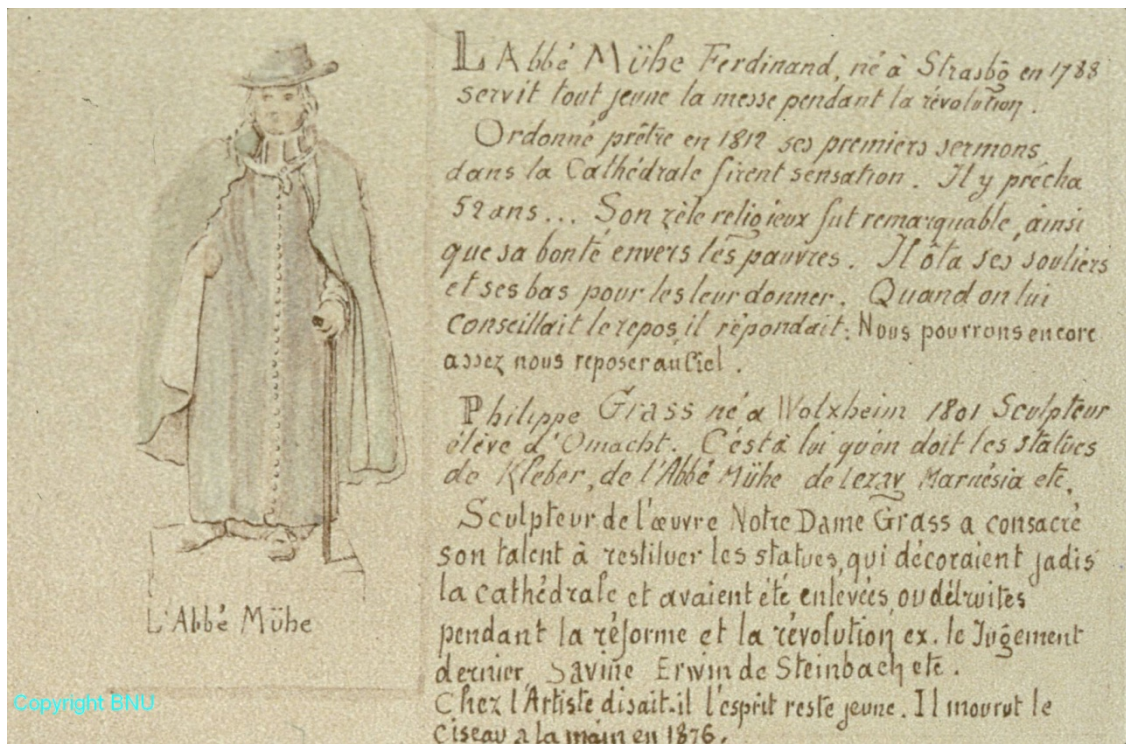 L'Abbé Mühe Ferdinand, né à Strasbg en 1788
servit tout jeune la messe pendant la révolution.
Ordonné prêtre en 1812 ses premiers sermons
dans la Cathédrale firent sensation. Il y prêcha
52 ans... Son zèle religieux fut remarquable, ainsi
que sa bonté envers les pauvres. Il ôta ses souliers
et ses bas pour les leur donner. Quand on lui
conseillait le repos, il répondait: Nous pourrons encore
assez nous reposer au Ciel.
Philippe Grass né à Wolxheim 1801 Sculpteur
élève d'Omacht. C'est à lui qu'on doit les statues
de Kleber, de l'Abbé Mühe de Lezay Marnésia etc.
Sculpteur de l'œuvre Notre Dame Grass a consacré
son talent à restituer les statues, qui décoraient jadis
la cathédrale et avaient été enlevées, ou détruites
pendant la réforme et la révolution ex. le Jugement
dernier, Savine Erwin de Steinbach etc.
Chez l'Artiste disait-il l'esprit reste jeune. Il mourut le
ciseau a la main en 1876.
L'Abbé Mühe
Copyright BNU